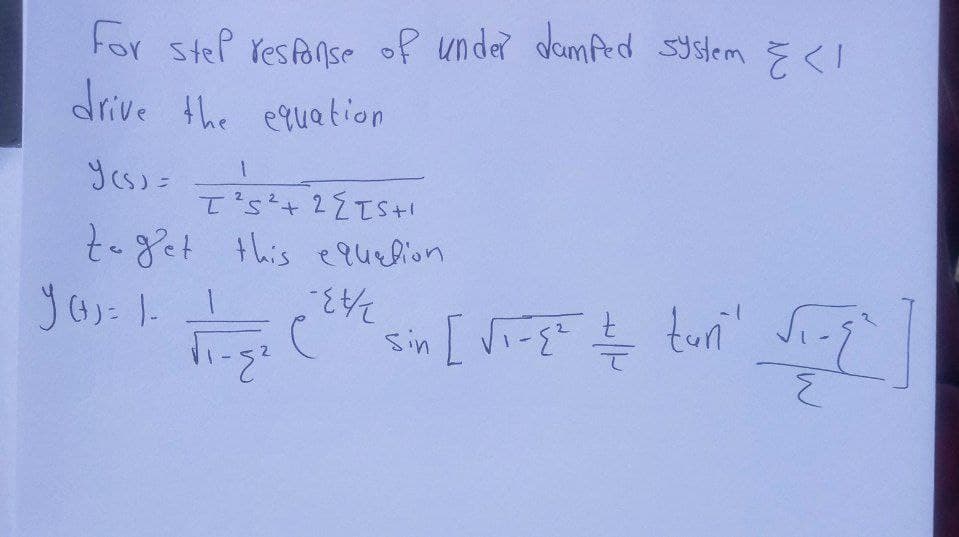 For step response of under damped system ξ < 1
drive the equation
y(s) = 1 / τ²s² + 2ξτs+1
to get this equation
y(t) = 1 - 1/√1-ξ² e^-ξt/τ sin [ √1-ξ² t/τ tan⁻¹ √1-ξ²/ξ ]